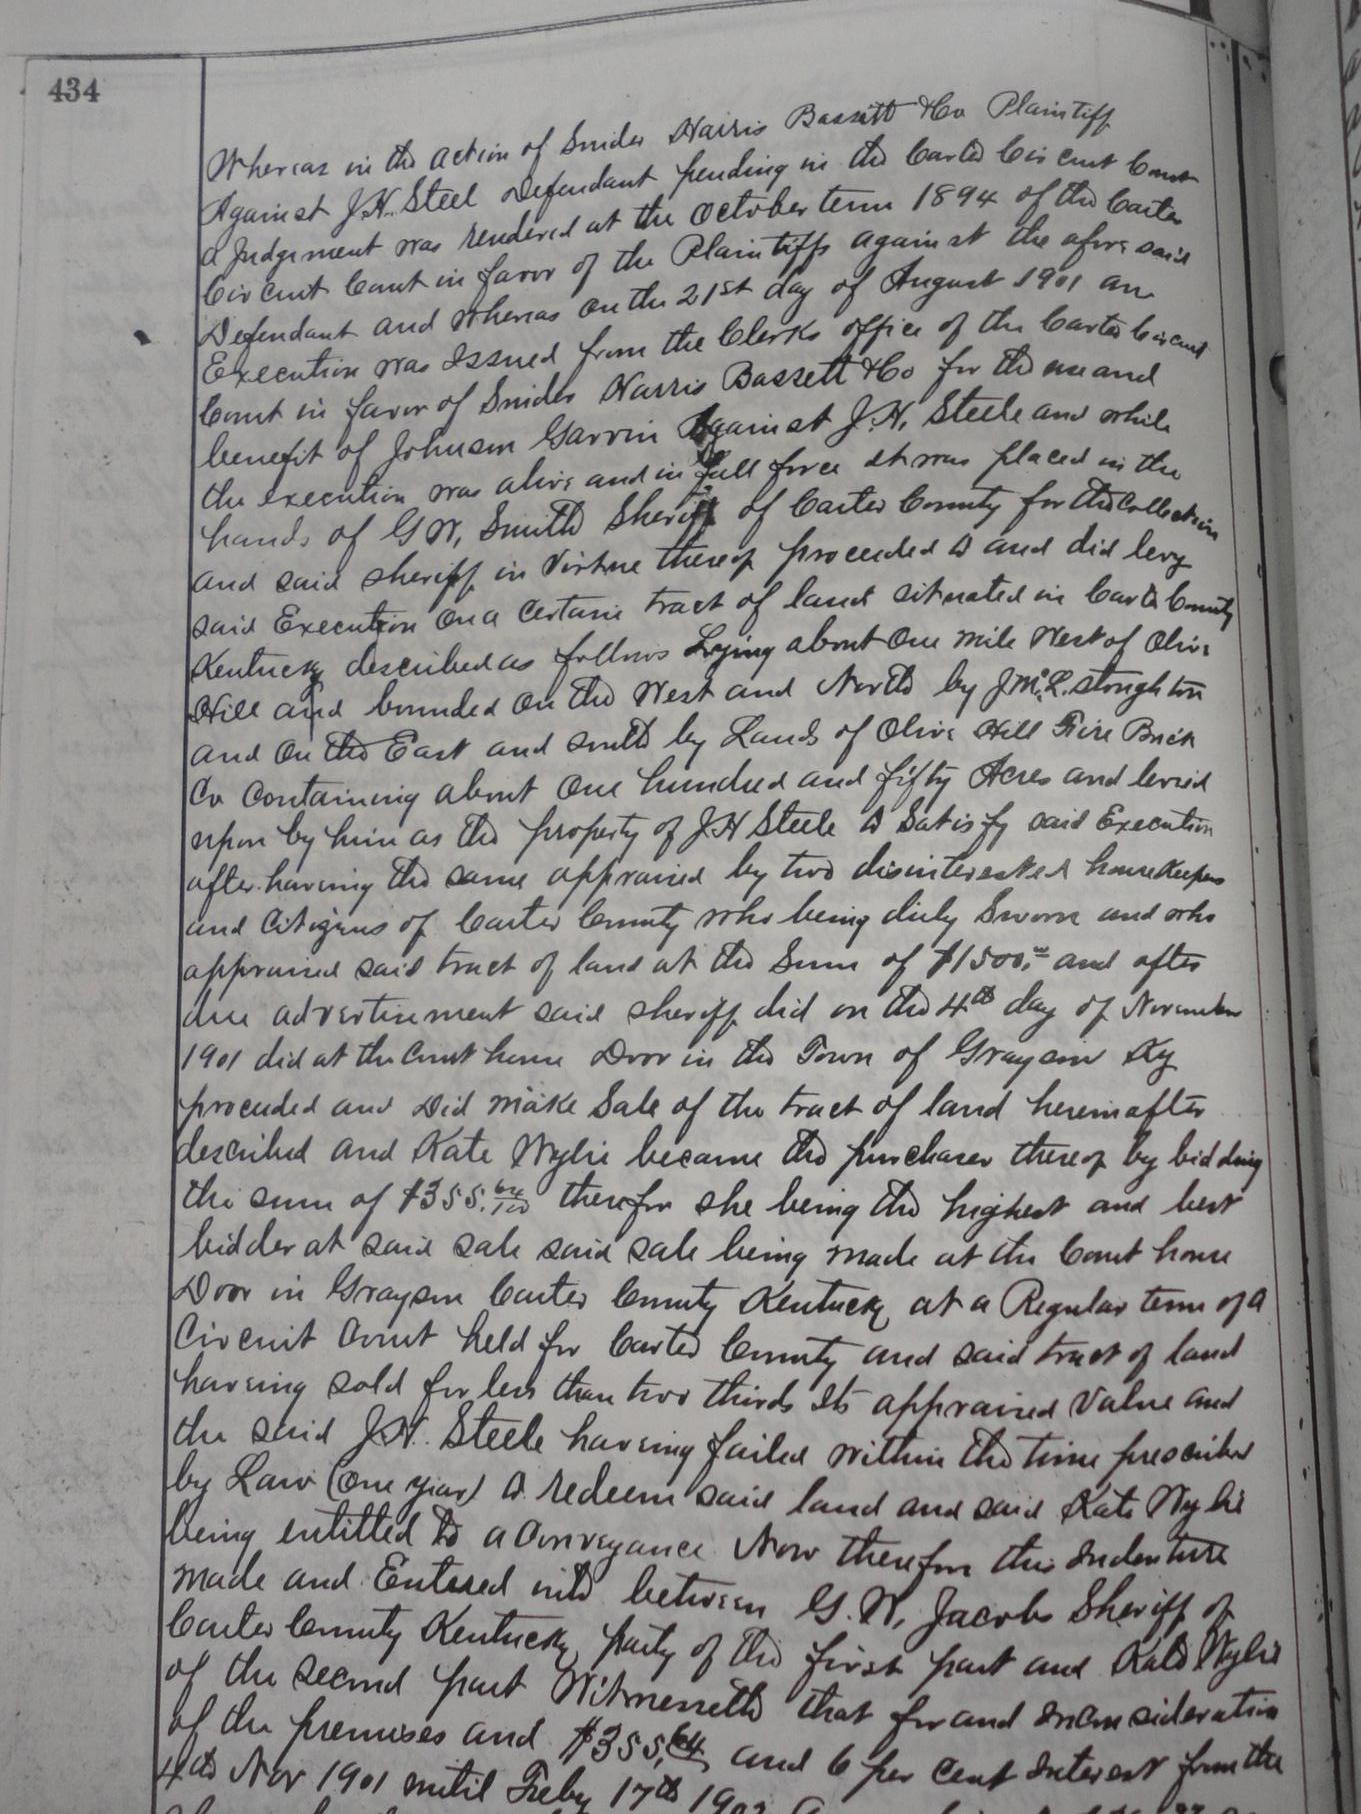 434
Whereas in the action of Snider Harris Bassett & Co Plaintiff
Against J.H. Steel Defendant pending in the Carter Circuit Court
a Judgement was rendered at the October term 1894 of the Carter
Circuit Court in favor of the Plaintiffs against the afore said
Defendant and whereas on the 21st day of August 1901 an
Execution was Issued from the Clerks office of the Carter Circuit
Court in favor of Snider Harris Bassett & Co for the use and
benefit of Johnson Garvin Against J.H. Steele and while
the execution was alive and in full force it was placed in the
hands of G W, Smith Sheriff of Carter County for the Collection
and said sheriff in Virtue thereof proceeded to and did levy
said Execution on a Certain tract of land situated in Carter County
Kentucky described as follows Lying about One mile West of Olive
Hill and bounded on the West and North by J Mc. L. stoughton
and on the East and south by Lands of Olive Hill Fire Brick
Co Containing about One hundred and fifty Acres and levied
upon by him as the property of J H Steele to Satisfy said Execution
after having the same appraised by two disinterested housekeepers
and Citizens of Carter County who being duly Sworn and who
appraised said tract of land at the Sum of $1500.00 and after
due advertisement said sheriff did on the 4th day of November
1901 did at the Court house Door in the Town of Grayson Ky
proceeded and Did make Sale of the tract of land hereinafter
described and Kate Wylie became the purchaser thereof by bidding
the sum of $355.64/100 therefor she being the highest and best
bidder at said sale said sale being made at the Court house
Door in Grayson Carter County Kentucky at a Regular term of a
Circuit Court held for Carter County and said tract of land
having sold for less than two thirds Its appraised Value and
the said J.H. Steele having failed within the time prescribed
by Law (One year) to redeem said land and said Kate Wylie
being entitled to a Conveyance Now therefore this Indenture
made and Entered into between G. W, Jacobs Sheriff of
Carter County Kentucky party of the first part and Kate Wylie
of the second part Witnesseth that for and In consideration
of the premises and $355,64 and 6 per cent Interest from the
4th Nov 1901 until Feby 17th 1903